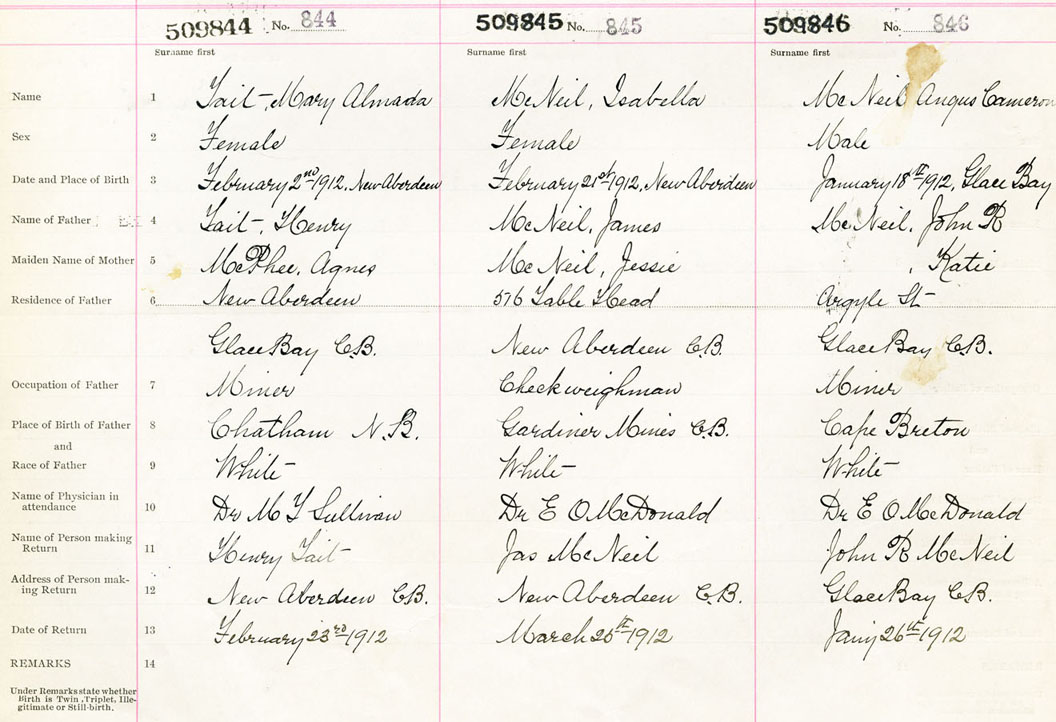 509844 No. 844 509845 No. 845 509846 No. 846
Surname first Surname first Surname first
Name 1 Tait, Mary Almada McNeil, Isabella McNeil Angus Cameron
Sex 2 Female Female Male
Date and Place of Birth 3 February 2nd 1912, New Aberdeen February 21st 1912, New Aberdeen January 18th 1912, Glace Bay
Name of Father 4 Tait, Henry McNeil, James McNeil, John R
Maiden Name of Mother 5 McPhee, Agnes McNeil, Jessie , Katie
Residence of Father 6 New Aberdeen 576 Table Head Argyle St
Glace Bay C.B. New Aberdeen C.B. Glace Bay C.B.
Occupation of Father 7 Miner Checkweighman Miner
Place of Birth of Father 8 Chatham N.B. Gardiner Mines C.B. Cape Breton
and
Race of Father 9 White White White
Name of Physician in
attendance 10 Dr M T Sullivan Dr E O McDonald Dr E O McDonald
Name of Person making
Return 11 Henry Tait Jas McNeil John R McNeil
Address of Person mak-
ing Return 12 New Aberdeen C.B. New Aberdeen C.B. Glace Bay C.B.
Date of Return 13 February 23rd 1912 March 25th 1912 Jany 26th 1912
REMARKS 14
Under Remarks state whether
Birth is Twin, Triplet, Ille-
gitimate or Still-birth.